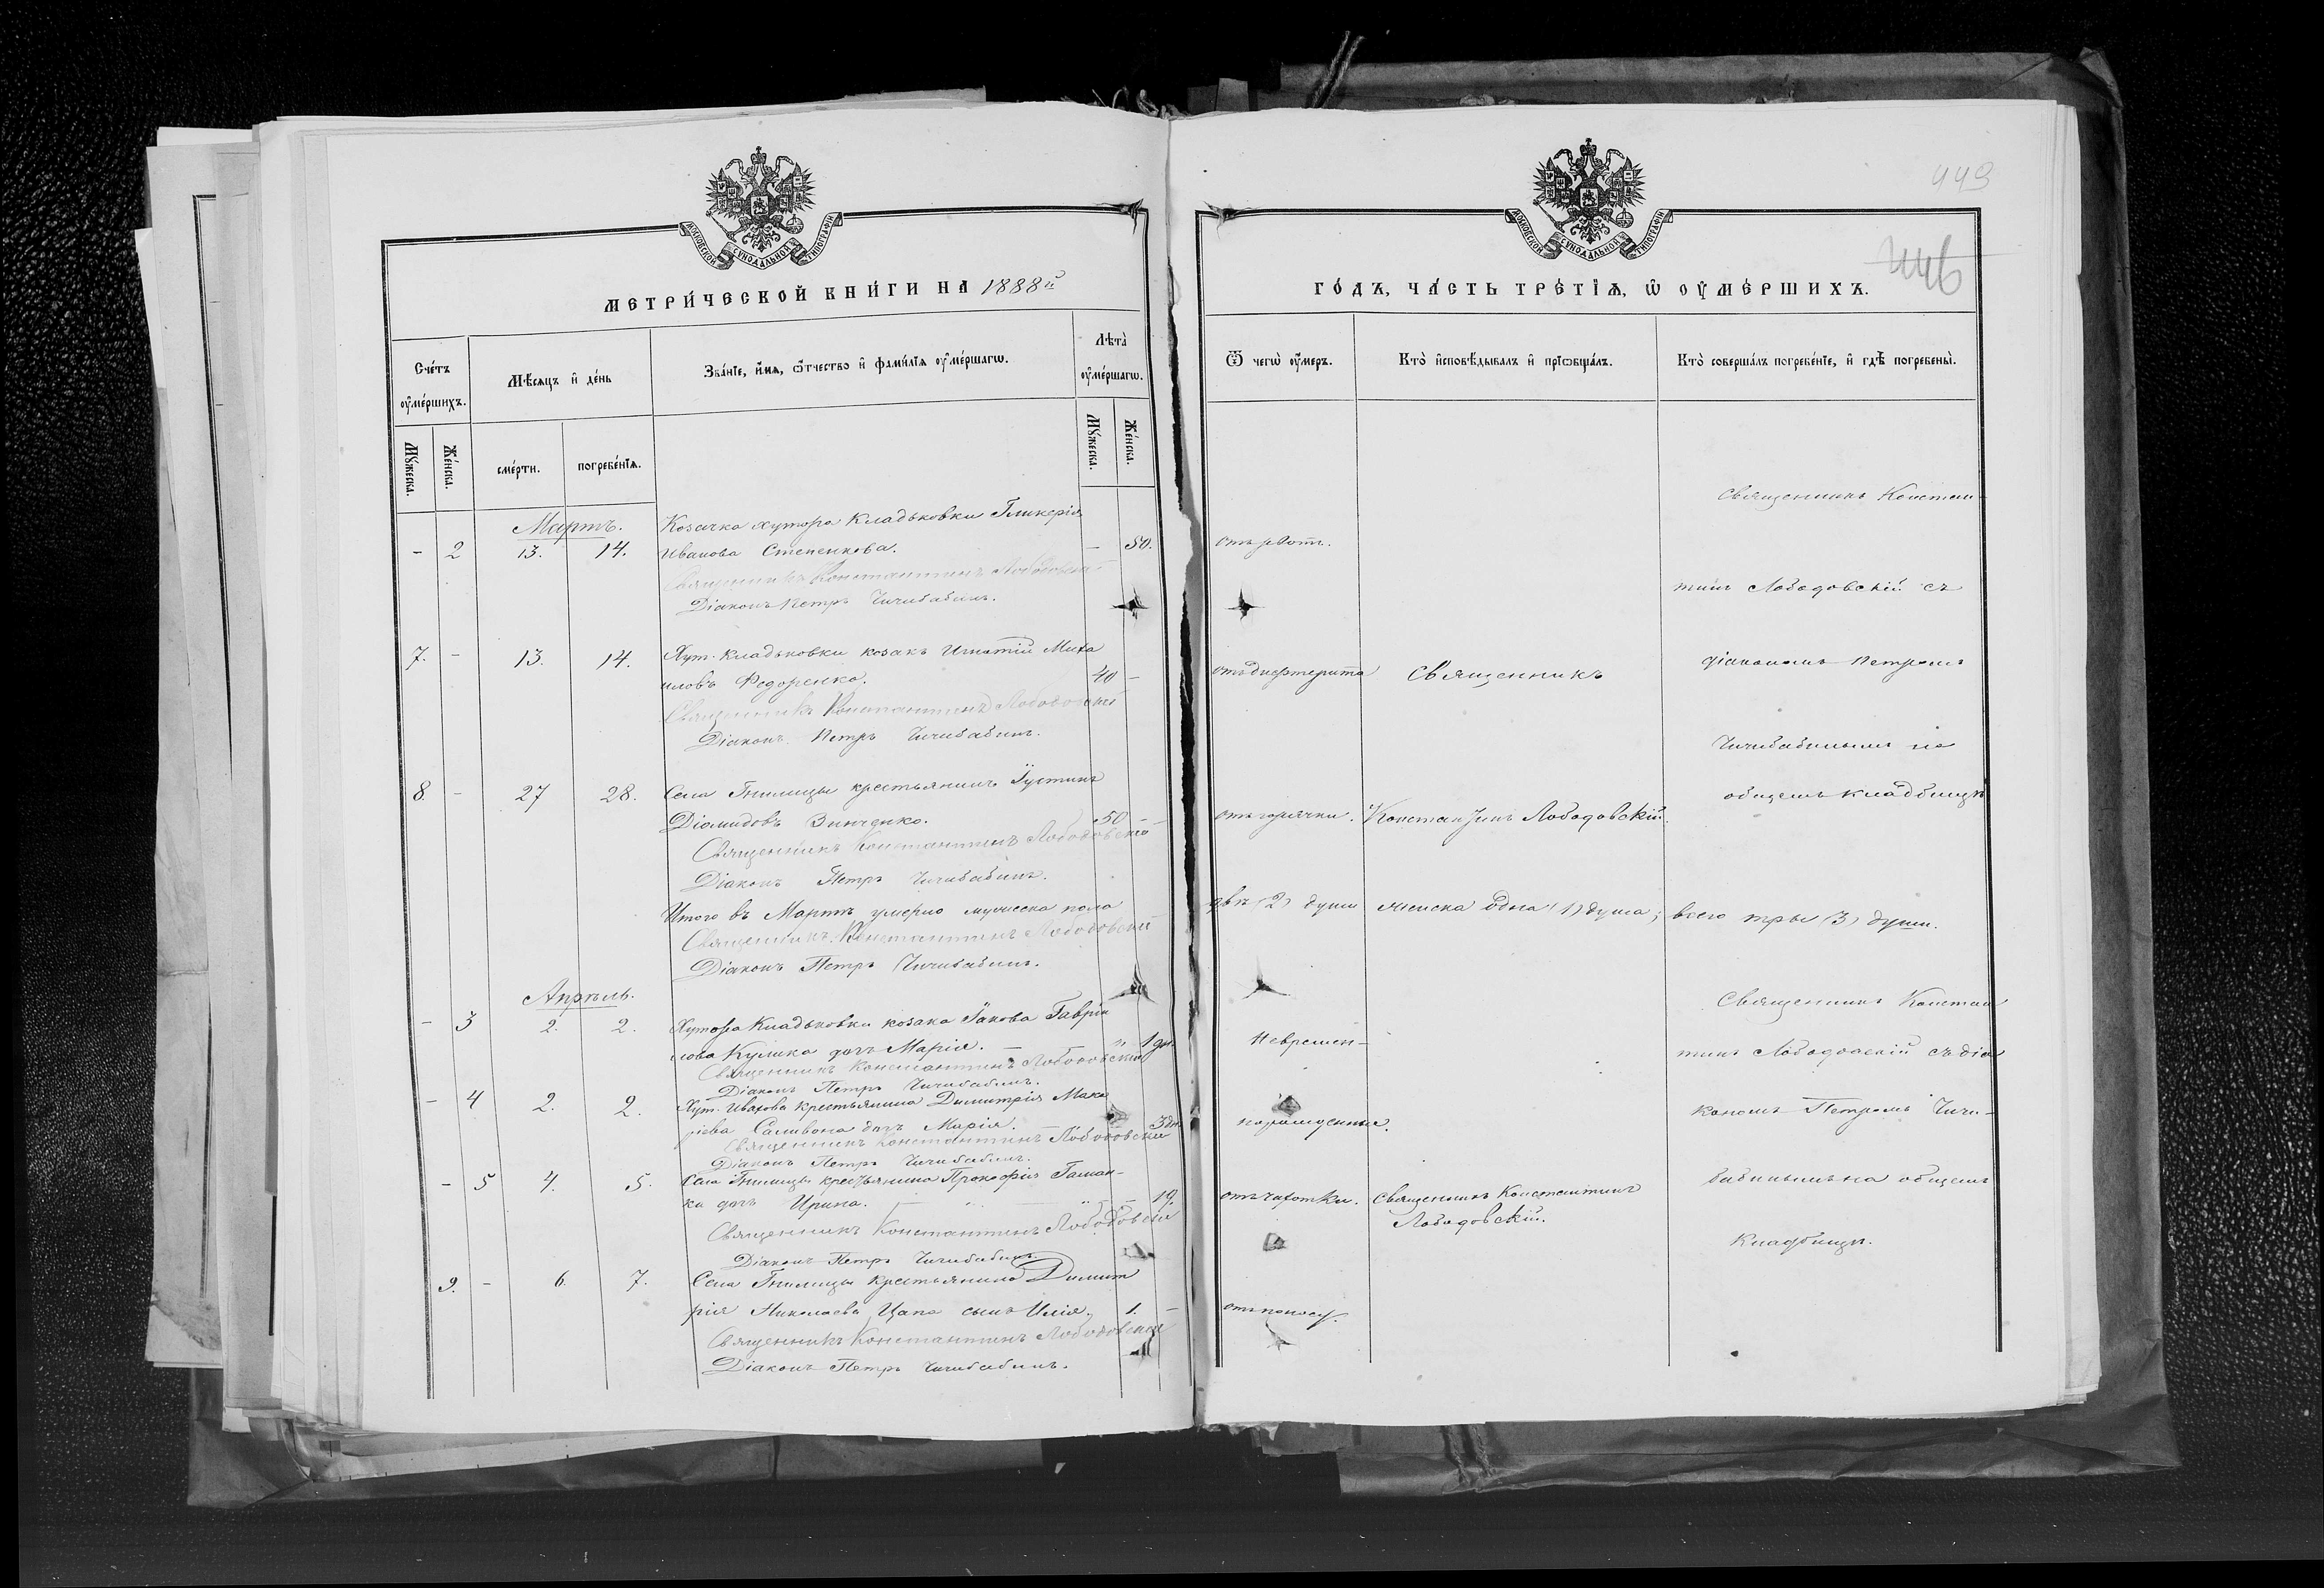 МОСКОВСКОЙ СУНОДАЛЬНОЙ ТИПОГРАФІИ
МЕТРИ́ЧЕСКОЙ КНИ́ГИ НА 1888й
Сче́тъ ᲂу҆ме́ршихъ.
Мѣ́сяцъ и҆ де́нь
Зва́нїе, и҆́мя, ѻ҆́тчество и҆ фами́лїѧ ᲂу҆ме́ршагѡ.
Лѣта̀ ᲂу҆ме́ршагѡ.
Мꙋ́жеска.
Же́нска.
сме́рти.
погребе́нїѧ.
Мꙋ́жеска.
Же́нска.
Мартъ.
Козачка хутора Кладьковки Гликерія
- 2 13. 14. Иванова Степенкова. — 50.
Священникъ Константинъ Лободовскій
Діаконъ Петръ Чичибабинъ.
7. - 13. 14. Хут. Кладьковки козакъ Игнатій Миха
иловъ Федоренко. 40 -
Священникъ Константинъ Лободовскій
Діаконъ Петръ Чичибабинъ.
8. - 27 28. Села Гнилицы крестьянинъ Іустинъ
Діомидовъ Зинченко. 50 -
Священникъ Константинъ Лободовскій
Діаконъ Петръ Чичибабинъ.
Итого въ Мартѣ умерло мужеска пола
Священникъ Константинъ Лободовскій
Діаконъ Петръ Чичибабинъ.
Апрѣль.
- 3 2. 2. Хутора Кладьковки козака Іакова Гавріи
лова Кулика дочь Марія. — " 1 дн.
Священникъ Константинъ Лободовскій
Діаконъ Петръ Чичибабинъ.
- 4 2. 2. Хут. крестьянина Димитрія Мака
ріева Саливона дочь Марія. 3 дн.
Священникъ Константинъ Лободовскій
Діаконъ Петръ Чичибабинъ.
- 5 4. 5. Села Гнилицы крестьянина Прокофія Гаман-
ка дочь Ирина. — 19.
Священникъ Константинъ Лободовскій
Діаконъ Петръ Чичибабинъ.
9. - 6. 7. Села Гнилицы крестьянина Димит
рія Николаева Цапа сынъ Илія. 1. -
Священникъ Константинъ Лободовскій
Діаконъ Петръ Чичибабинъ.
449
446
МОСКОВСКОЙ СУНОДАЛЬНОЙ ТИПОГРАФІИ
ГО́ДЪ, ЧА́СТЬ ТРЕ́ТЇѦ, Ѡ҆ ОУ҆МЕ́РШИХЪ.
Ѿ чегѡ̀ ᲂу҆́меръ.
Кто̀ и҆сповѣ́дывалъ и҆ прїѡбща́лъ.
Кто̀ соверша́лъ погребе́нїе, и҆ гдѣ̀ погребены̀.
Священникъ Констан-
отъ рвотъ.
тинъ Лободовскій съ
отъ дифтерита Священникъ діакономъ Петромъ
Чичибабинымъ на
общемъ кладбищѣ
отъ горячки. Константинъ Лободовскій.
двѣ (2) души женска одна (1) душа; всего три (3) души.
Священникъ Констан
Невремен-
тинъ Лободовскій съ діа
кономъ Петромъ Чичи-
норожденные.
бабинымъ на общемъ
отъ чахотки. Священникъ Константинъ
Лободовскій.
Кладбищѣ.
отъ поносу.